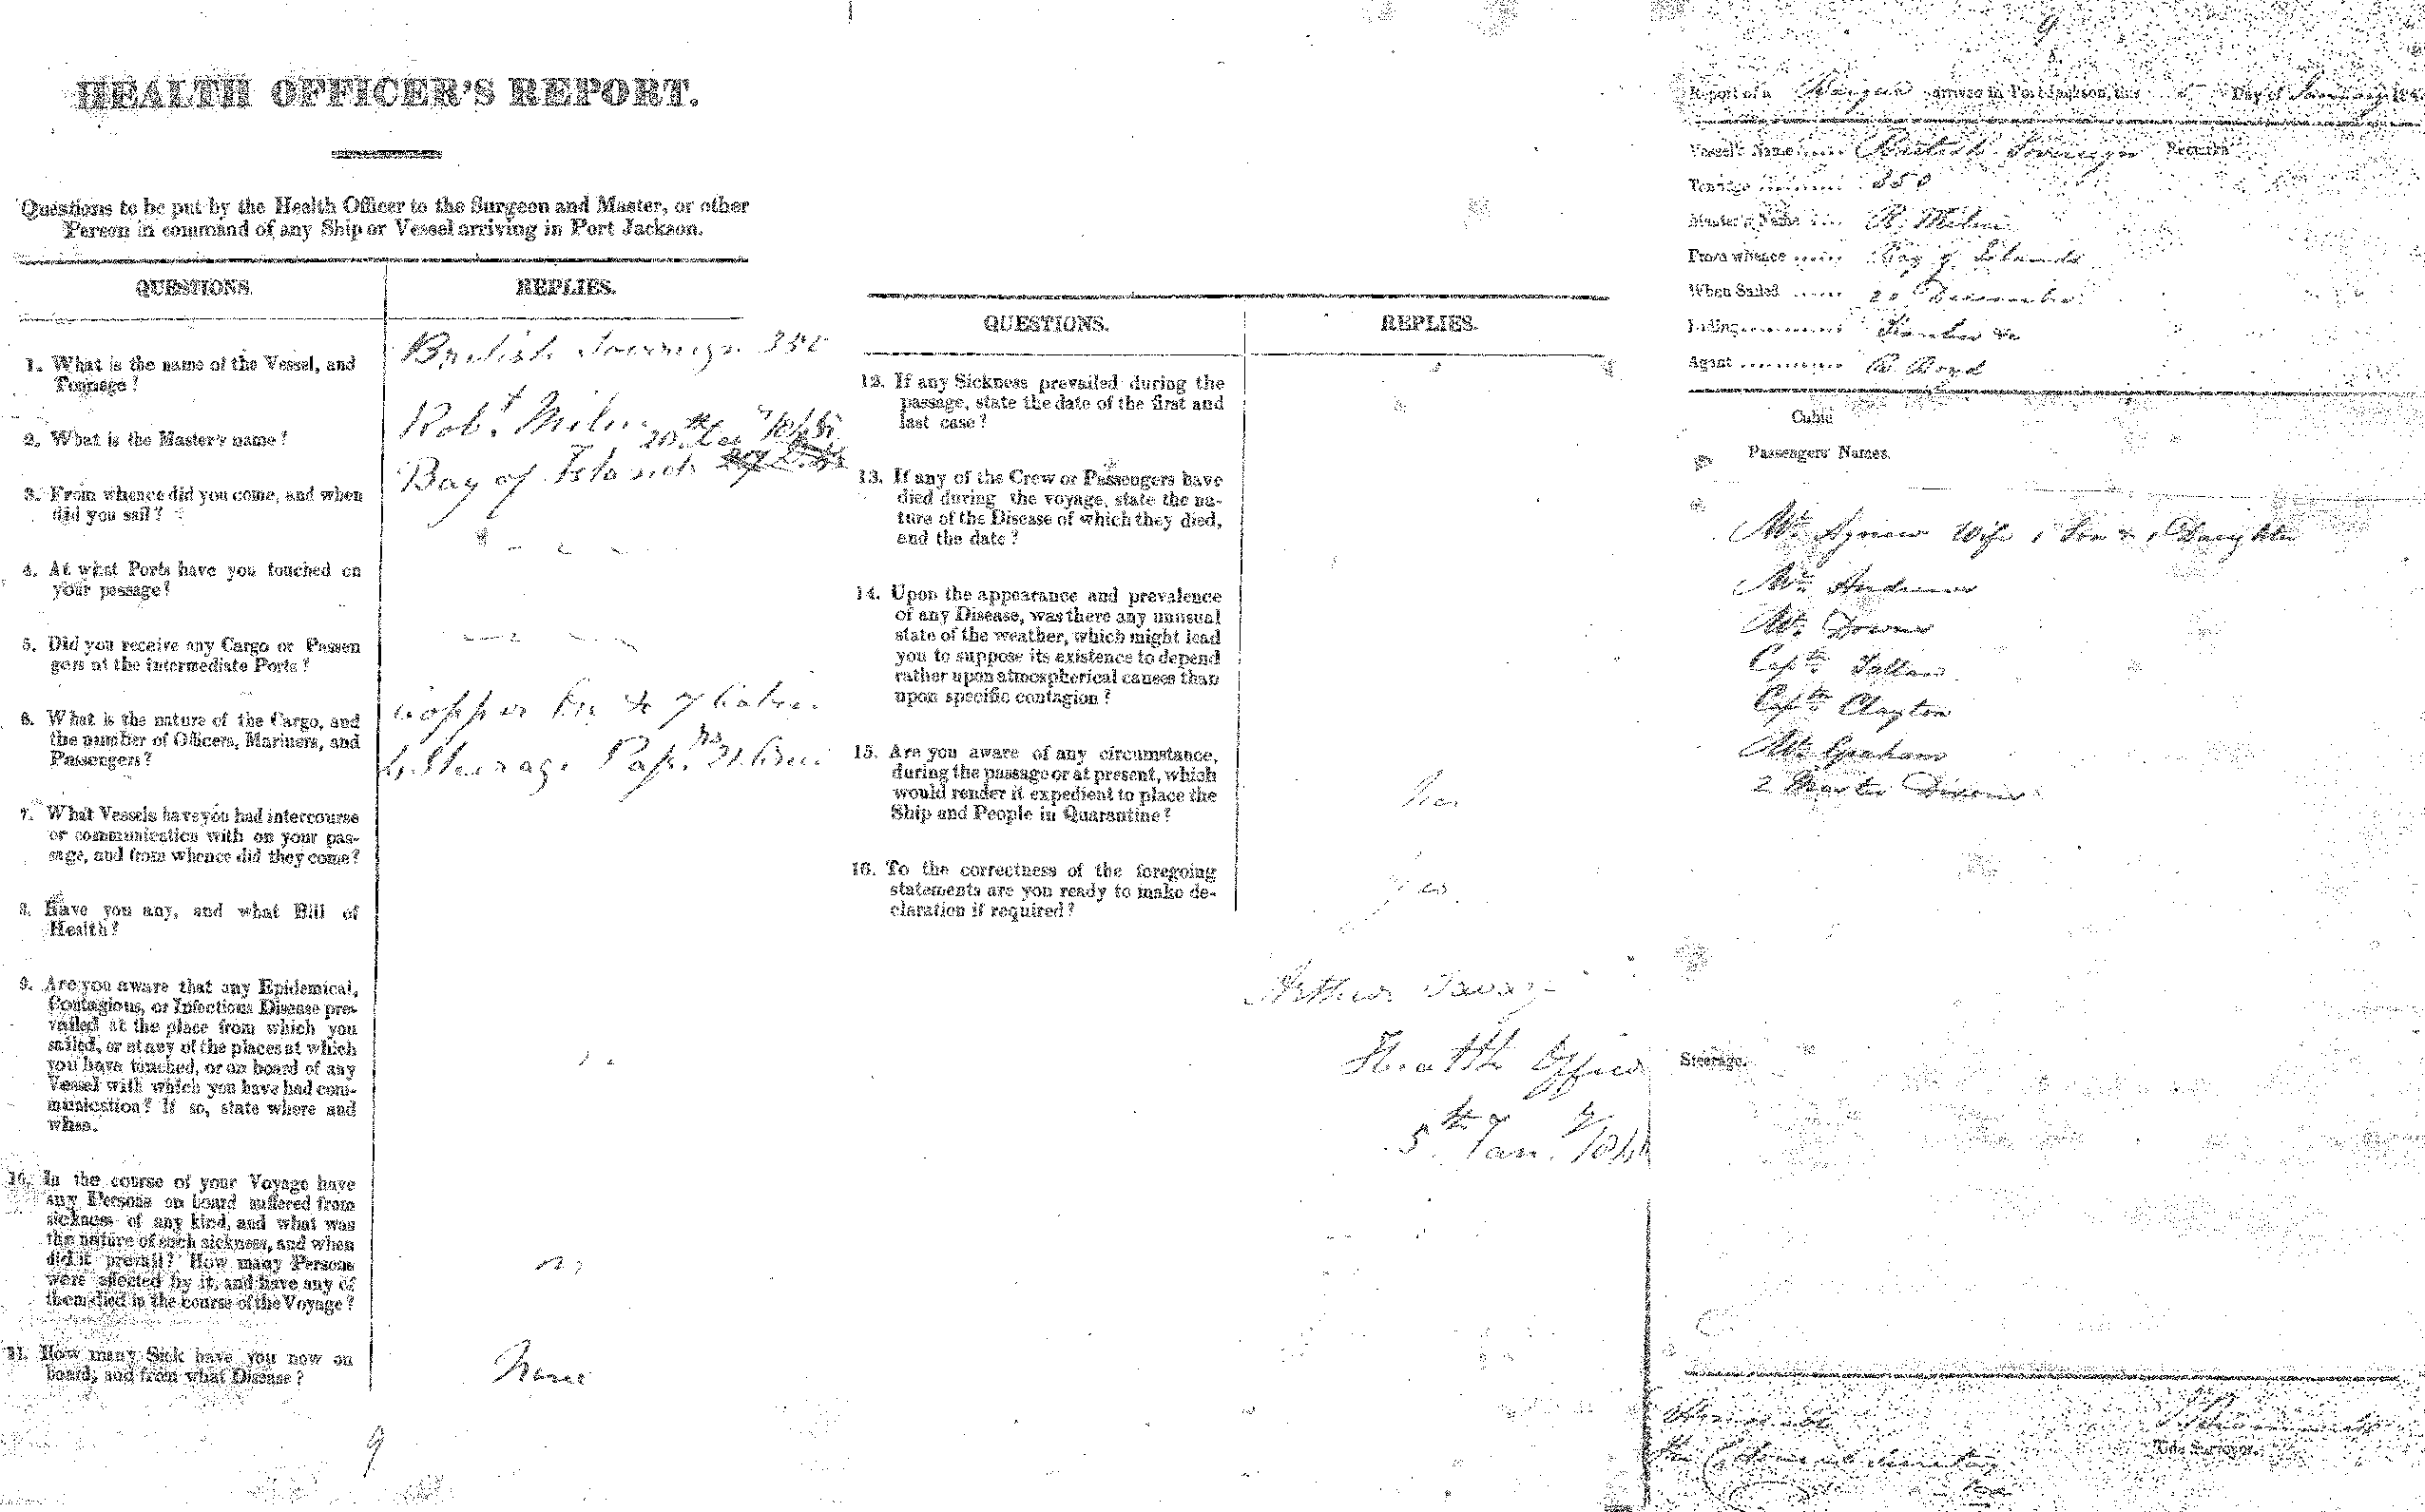 HEALTH OFFICER'S REPORT.
Questions to be put by the Health Officer to the Surgeon and Master, or other
Person in command of any Ship or Vessel arriving in Port Jackson.
QUESTIONS.
REPLIES.
1. What is the name of the Vessel, and
Tonnage?
British Sovereign 350
2. What is the Master's name?
Robt. Milne
3. From whence did you come, and when
did you sail?
20th Dec
Bay of Islands
4. At what Ports have you touched on
your passage?
5. Did you receive any Cargo or Passen
gers at the intermediate Ports?
6. What is the nature of the Cargo, and
the number of Officers, Mariners, and
Passengers?
Copper &c 7 Cabin
Steerage Pass.
7. What Vessels have you had intercourse
or communication with on your pas-
sage, and from whence did they come?
8. Have you any, and what Bill of
Health?
9. Are you aware that any Epidemical,
Contagious, or Infectious Disease pre-
vailed at the place from which you
sailed, or at any of the places at which
you have touched, or on board of any
Vessel with which you have had com-
munication? If so, state where and
when.
10. In the course of your Voyage have
any Persons on board suffered from
sickness of any kind, and what was
the nature of such sickness, and when
did it prevail? How many Persons
were affected by it, and have any of
them died in the course of the Voyage?
no
11. How many Sick have you now on
board, and from what Disease?
None
9
QUESTIONS.
REPLIES.
12. If any Sickness prevailed during the
passage, state the date of the first and
last case?
13. If any of the Crew or Passengers have
died during the voyage, state the na-
ture of the Disease of which they died,
and the date?
14. Upon the appearance and prevalence
of any Disease, was there any unusual
state of the weather, which might lead
you to suppose its existence to depend
rather upon atmospherical causes than
upon specific contagion?
15. Are you aware of any circumstance,
during the passage or at present, which
would render it expedient to place the
Ship and People in Quarantine?
16. To the correctness of the foregoing
statements are you ready to make de-
claration if required?
Yes
Arthur Savage
Health Officer
5th Jan.
9
Report of a Barque arrived in Port Jackson, this 5 Day of January 184
Vessel's Name British Sovereign Remarks
Tonnage 350
Master's Name R. Milne
From whence Bay of Islands
When Sailed 20th December
Lading &c
Agent B. Boyd
Cabin
Passengers' Names.
Mr. Agnew Wife 1 Son & 1 Daughter
Andrews
Mr.
Captn
Captn Clayton
Mr. Graham
2
Steerage.
Tide Surveyor.